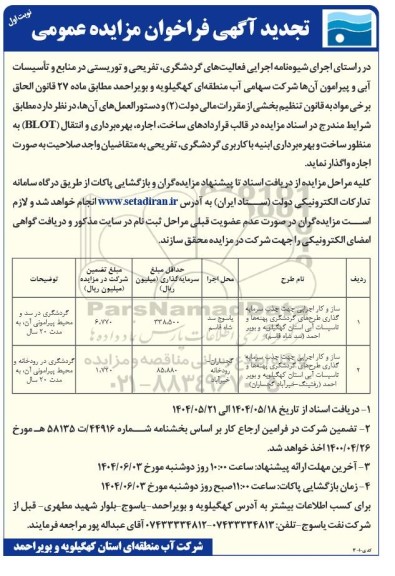 نوبت اول
تجدید آگهی فراخوان مزایده عمومی
در راستای اجرای شیوه‌نامه اجرایی فعالیت‌های گردشگری، تفریحی و توریستی در منابع و تأسیسات
آبی و پیرامون آن‌ها شرکت سهامی آب منطقه‌ای کهگیلویه و بویراحمد مطابق ماده ۲۷ قانون الحاق
برخی مواد به قانون تنظیم بخشی از مقررات مالی دولت (۲) و دستورالعمل‌های آن‌ها، در نظر دارد مطابق
شرایط مندرج در اسناد مزایده در قالب قراردادهای ساخت، اجاره، بهره‌برداری و انتقال (BLOT) به
منظور ساخت و بهره‌برداری ابنیه با کاربری گردشگری، تفریحی به متقاضیان واجد صلاحیت به صورت
اجاره واگذار نماید.
کلیه مراحل مزایده از دریافت اسناد تا پیشنهاد مزایده‌گران و بازگشایی پاکات از طریق درگاه سامانه
تدارکات الکترونیکی دولت (ستاد ایران) به آدرس www.setadiran.ir انجام خواهد شد و لازم
است مزایده‌گران در صورت عدم عضویت قبلی مراحل ثبت نام در سایت مذکور و دریافت گواهی
امضای الکترونیکی را جهت شرکت در مزایده محقق سازند.
ردیف نام طرح محل اجرا حداقل مبلغ سرمایه‌گذاری (میلیون ریال) مبلغ تضمین شرکت در مزایده (میلیون ریال) توضیحات
۱ ساز و کار اجرایی جهت جذب سرمایه گذاری طرح‌های گردشگری پهنه‌ها و تاسیسات آبی استان کهگیلویه و بویر احمد (سد شاه قاسم) یاسوج سد شاه قاسم ۳۳۸،۵۰۰ ۶،۷۷۰ گردشگری در سد و محیط پیرامونی آن، به مدت ۲۰ سال
۲ ساز و کار اجرایی جهت جذب سرمایه گذاری طرح‌های گردشگری پهنه‌ها و تاسیسات آبی استان کهگیلویه و بویر احمد (رفتینگ-خیرآباد گچساران) گچساران- رودخانه خیرآباد ۸۵،۸۸۰ ۱،۷۲۰ گردشگری در رودخانه و محیط پیرامونی آن، به مدت ۲۰ سال
۱- دریافت اسناد از تاریخ ۱۴۰۴/۰۵/۱۸ الی ۱۴۰۴/۰۵/۲۱
۲- تضمین شرکت در فرامین ارجاع کار بر اساس بخشنامه شماره ۴۴۹۱۶/ت ۵۸۱۳۵ هـ مورخ
۱۴۰۰/۰۴/۲۶ اخذ خواهد شد.
۳- آخرین مهلت ارائه پیشنهاد: ساعت ۱۰:۰۰ روز دوشنبه مورخ ۱۴۰۴/۰۶/۰۳
۴- زمان بازگشایی پاکات: ساعت ۱۱:۰۰صبح روز دوشنبه مورخ ۱۴۰۴/۰۶/۰۳
برای کسب اطلاعات بیشتر به آدرس کهگیلویه و بویراحمد-یاسوج-بلوار شهید مطهری- قبل از
شرکت نفت یاسوج-تلفن: ۰۷۴۳۳۳۳۴۸۱۳-۰۷۴۳۳۳۳۴۸۱۲ آقای عبداله پور مراجعه فرمایند.
شرکت آب منطقه‌ای استان کهگیلویه و بویراحمد